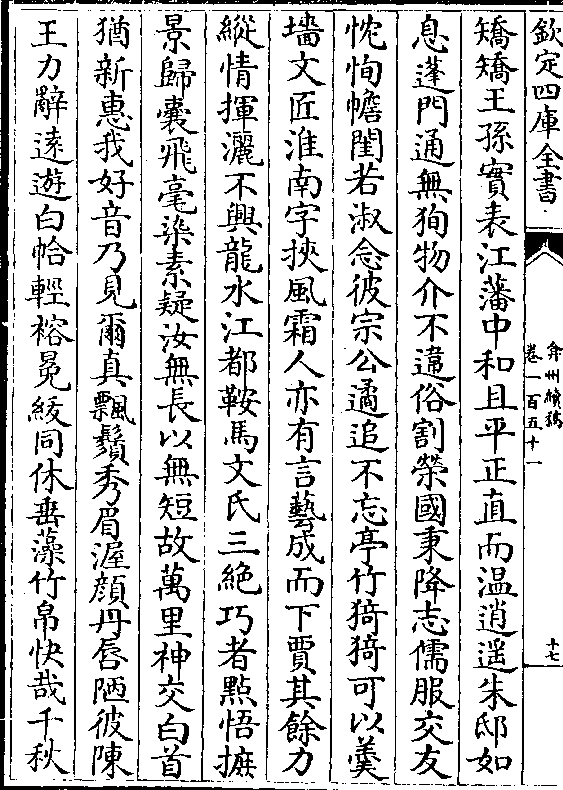 欽定四庫全書
弇州續稿
卷一百五十一
十七
矯矯王孫實表江藩中和且平正直而温逍遥朱邸如
息蓬門通無狥物介不違俗割榮國秉降志儒服交友
忱恂幨閨若淑念彼宗公遹追不忘亭竹猗猗可以羮
墻文匠淮南字挾風霜人亦有言藝成而下賈其餘力
縱情揮灑不興龍水江都鞍馬文氏三絶巧者㸃悟摭
景歸囊飛毫染素疑汝無長以無短故萬里神交白首
猶新惠我好音乃見爾真飄鬚秀眉渥顔丹唇陋彼陳
王力辭逺遊白帢輕褣冕綬同休垂藻竹帛快哉千秋